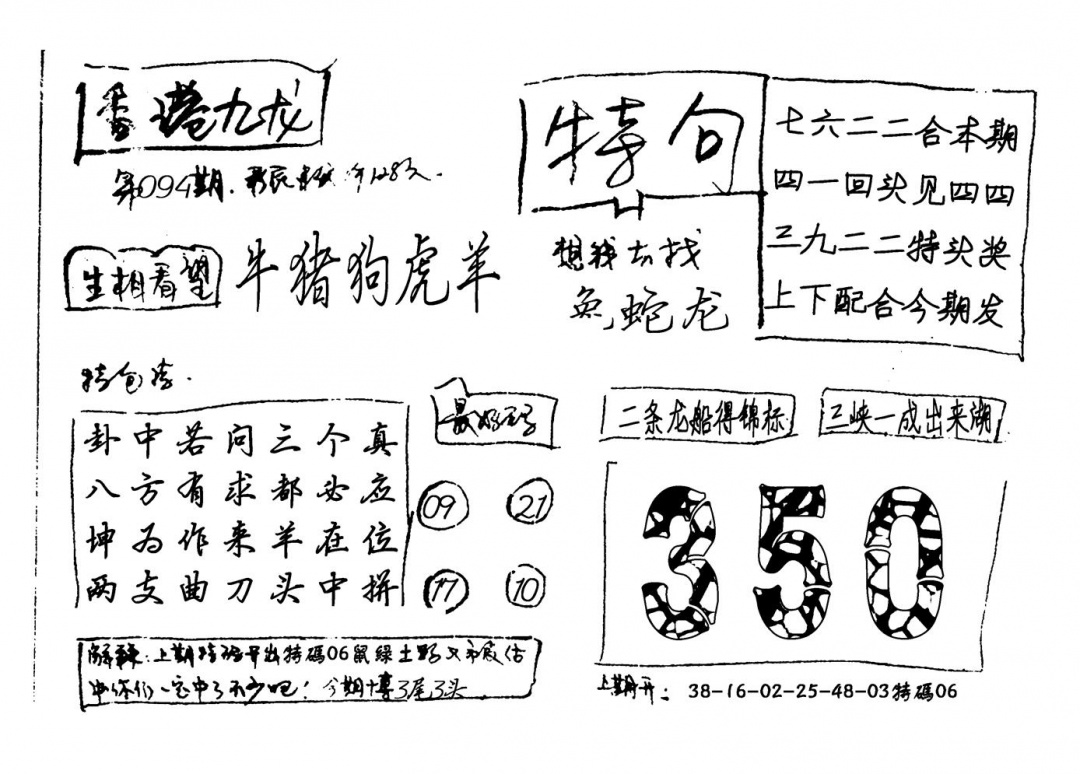 香港九龙
第094期.
生相看望
牛猪狗虎羊
特句
想我去找
兔蛇龙
七六二二合本期
四一回头见四四
三九二二特头奖
上下配合今期发
卦中若问三个真
八方有求都必应
坤为作来羊在位
两支曲刀头中拼
09 21
17 10
二条龙船得锦标
三峡一成出来湖
350
上期 开出特碼06鼠绿土
中你们一定中了不少吧！今期博3尾3头
上期开：38-16-02-25-48-03特碼06